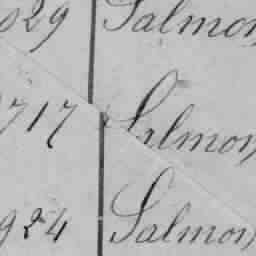 829 Salmon
717 Salmon
924 Salmon